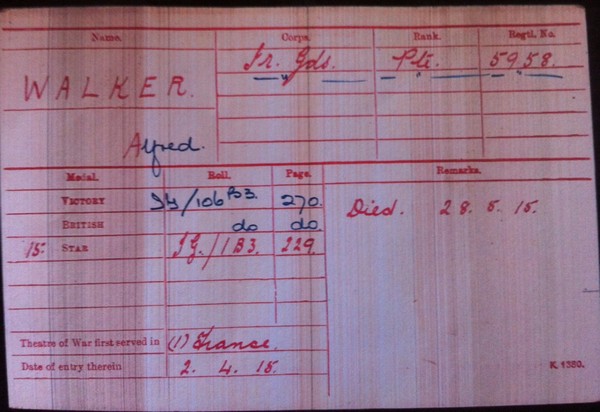 Name. Corps. Rank. Regtl. No.
WALKER. Ir. Gds. Pte. 5958.
" " "
Alfred.
Medal. Roll. Page. Remarks.
VICTORY IG/106 B3. 270.
Died. 28. 5. 15.
BRITISH do do.
15. STAR IG./1 B3. 229.
Theatre of War first served in (1) France.
Date of entry therein 2. 4. 15.
K 1380.